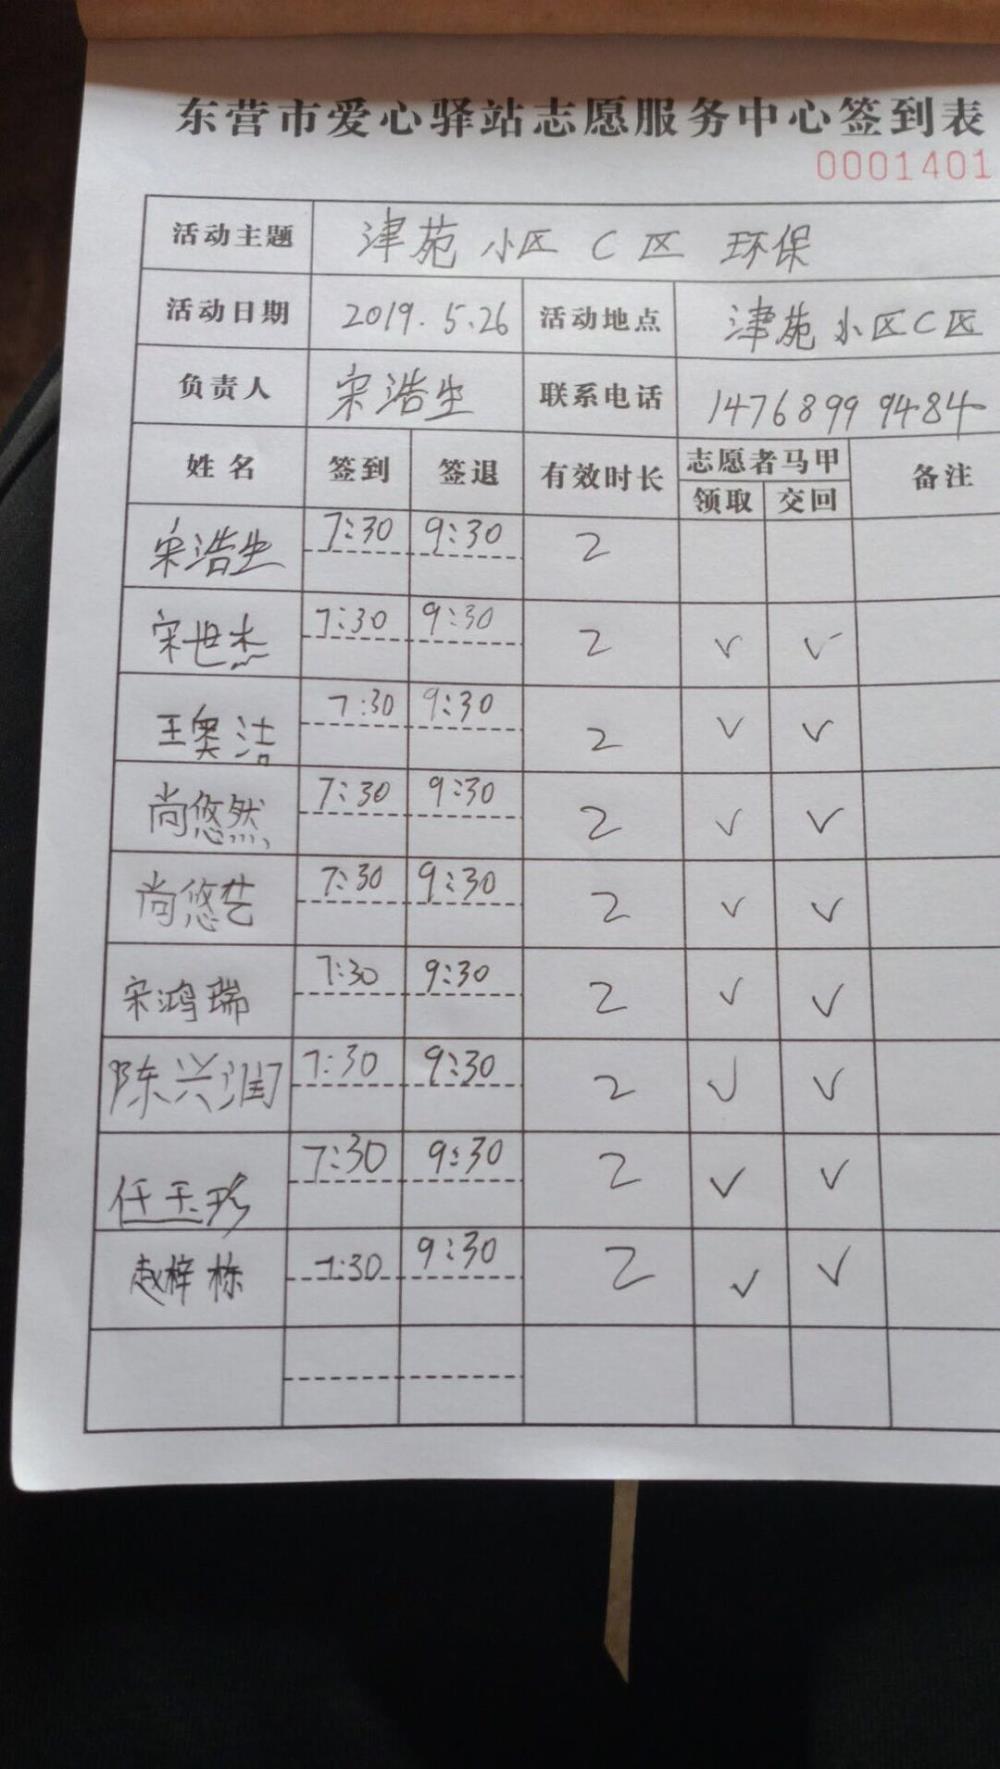 东营市爱心驿站志愿服务中心签到表
0001401
活动主题 津苑小区C区 环保
活动日期 2019.5.26 活动地点 津苑小区C区
负责人 宋浩生 联系电话 14768999484
姓名 签到 签退 有效时长 志愿者马甲 备注
领取 交回
宋浩生 7:30 9:30 2
宋世杰 7:30 9:30 2 √ √
王奥洁 7:30 9:30 2 √ √
尚悠然 7:30 9:30 2 √ √
尚悠艺 7:30 9:30 2 √ √
宋鸿瑞 7:30 9:30 2 √ √
陈兴润 7:30 9:30 2 √ √
任玉珍 7:30 9:30 2 √ √
赵梓栋 7:30 9:30 2 √ √